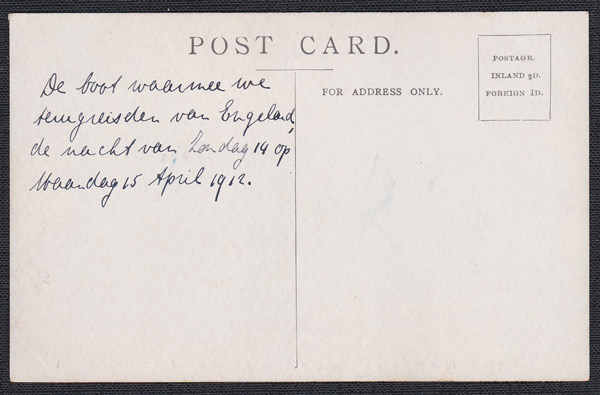 POST CARD.
De boot waarmee we
terugreisden van Engeland,
de nacht van Zondag 14 op
Maandag 15 April 1912.
FOR ADDRESS ONLY.
POSTAGE.
INLAND ½D.
FOREIGN 1D.